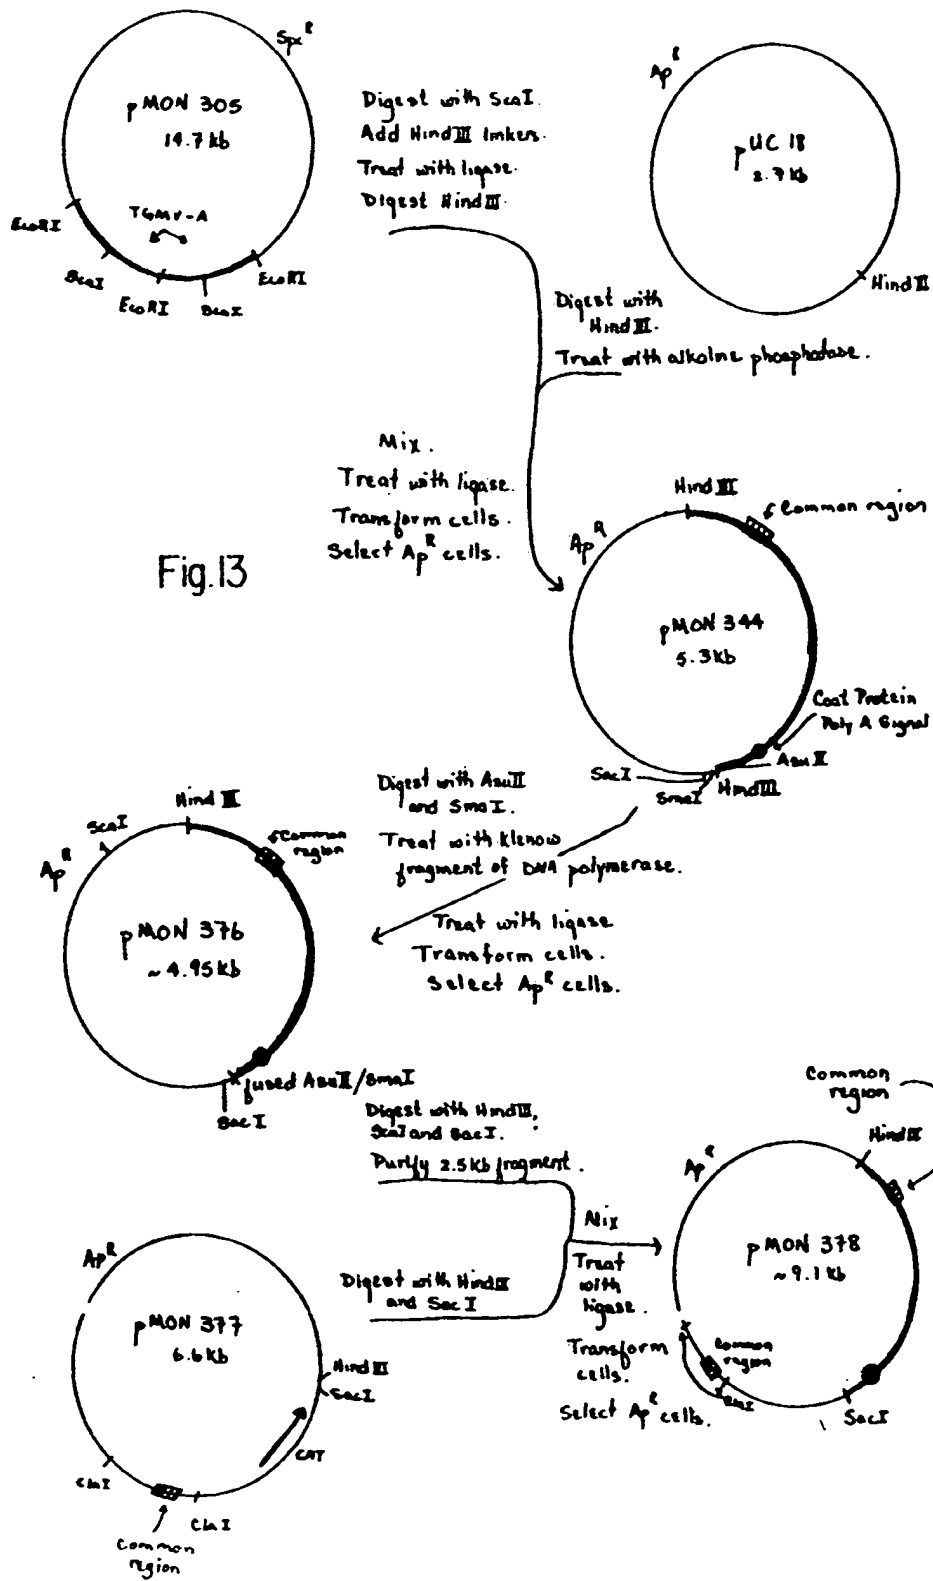 Spc R
pMON 305
14.7 kb
TGMV-A
EcoRI
ScaI
EcoRI
ScaI
EcoRI
Digest with ScaI.
Add Hind III linkers.
Treat with ligase.
Digest Hind III.
Ap R
pUC 18
2.7 kb
Hind III
Digest with
Hind III.
Treat with alkaline phosphatase.
Mix.
Treat with ligase.
Transform cells.
Select Ap R cells.
Fig.13
Hind III
Common region
Ap R
pMON 344
5.3 kb
Coat Protein
Poly A Signal
Asu II
SacI
SmaI
Hind III
Digest with Asu II
and SmaI.
Treat with Klenow
fragment of DNA polymerase.
Treat with ligase
Transform cells.
Select Ap R cells.
Hind III
ScaI
Common
region
Ap R
pMON 376
~4.95 kb
fused Asu II/SmaI
SacI
Digest with Hind III,
ScaI and SacI.
Purify 2.5 kb fragment.
Common
region
Hind III
Ap R
pMON 378
~9.1 kb
Common
region
ClaI
SacI
Mix
Treat
with
ligase.
Transform
cells.
Select Ap R cells.
Ap R
pMON 377
6.6 kb
Hind III
SacI
CAT
ClaI
ClaI
Common
region
Digest with Hind III
and SacI